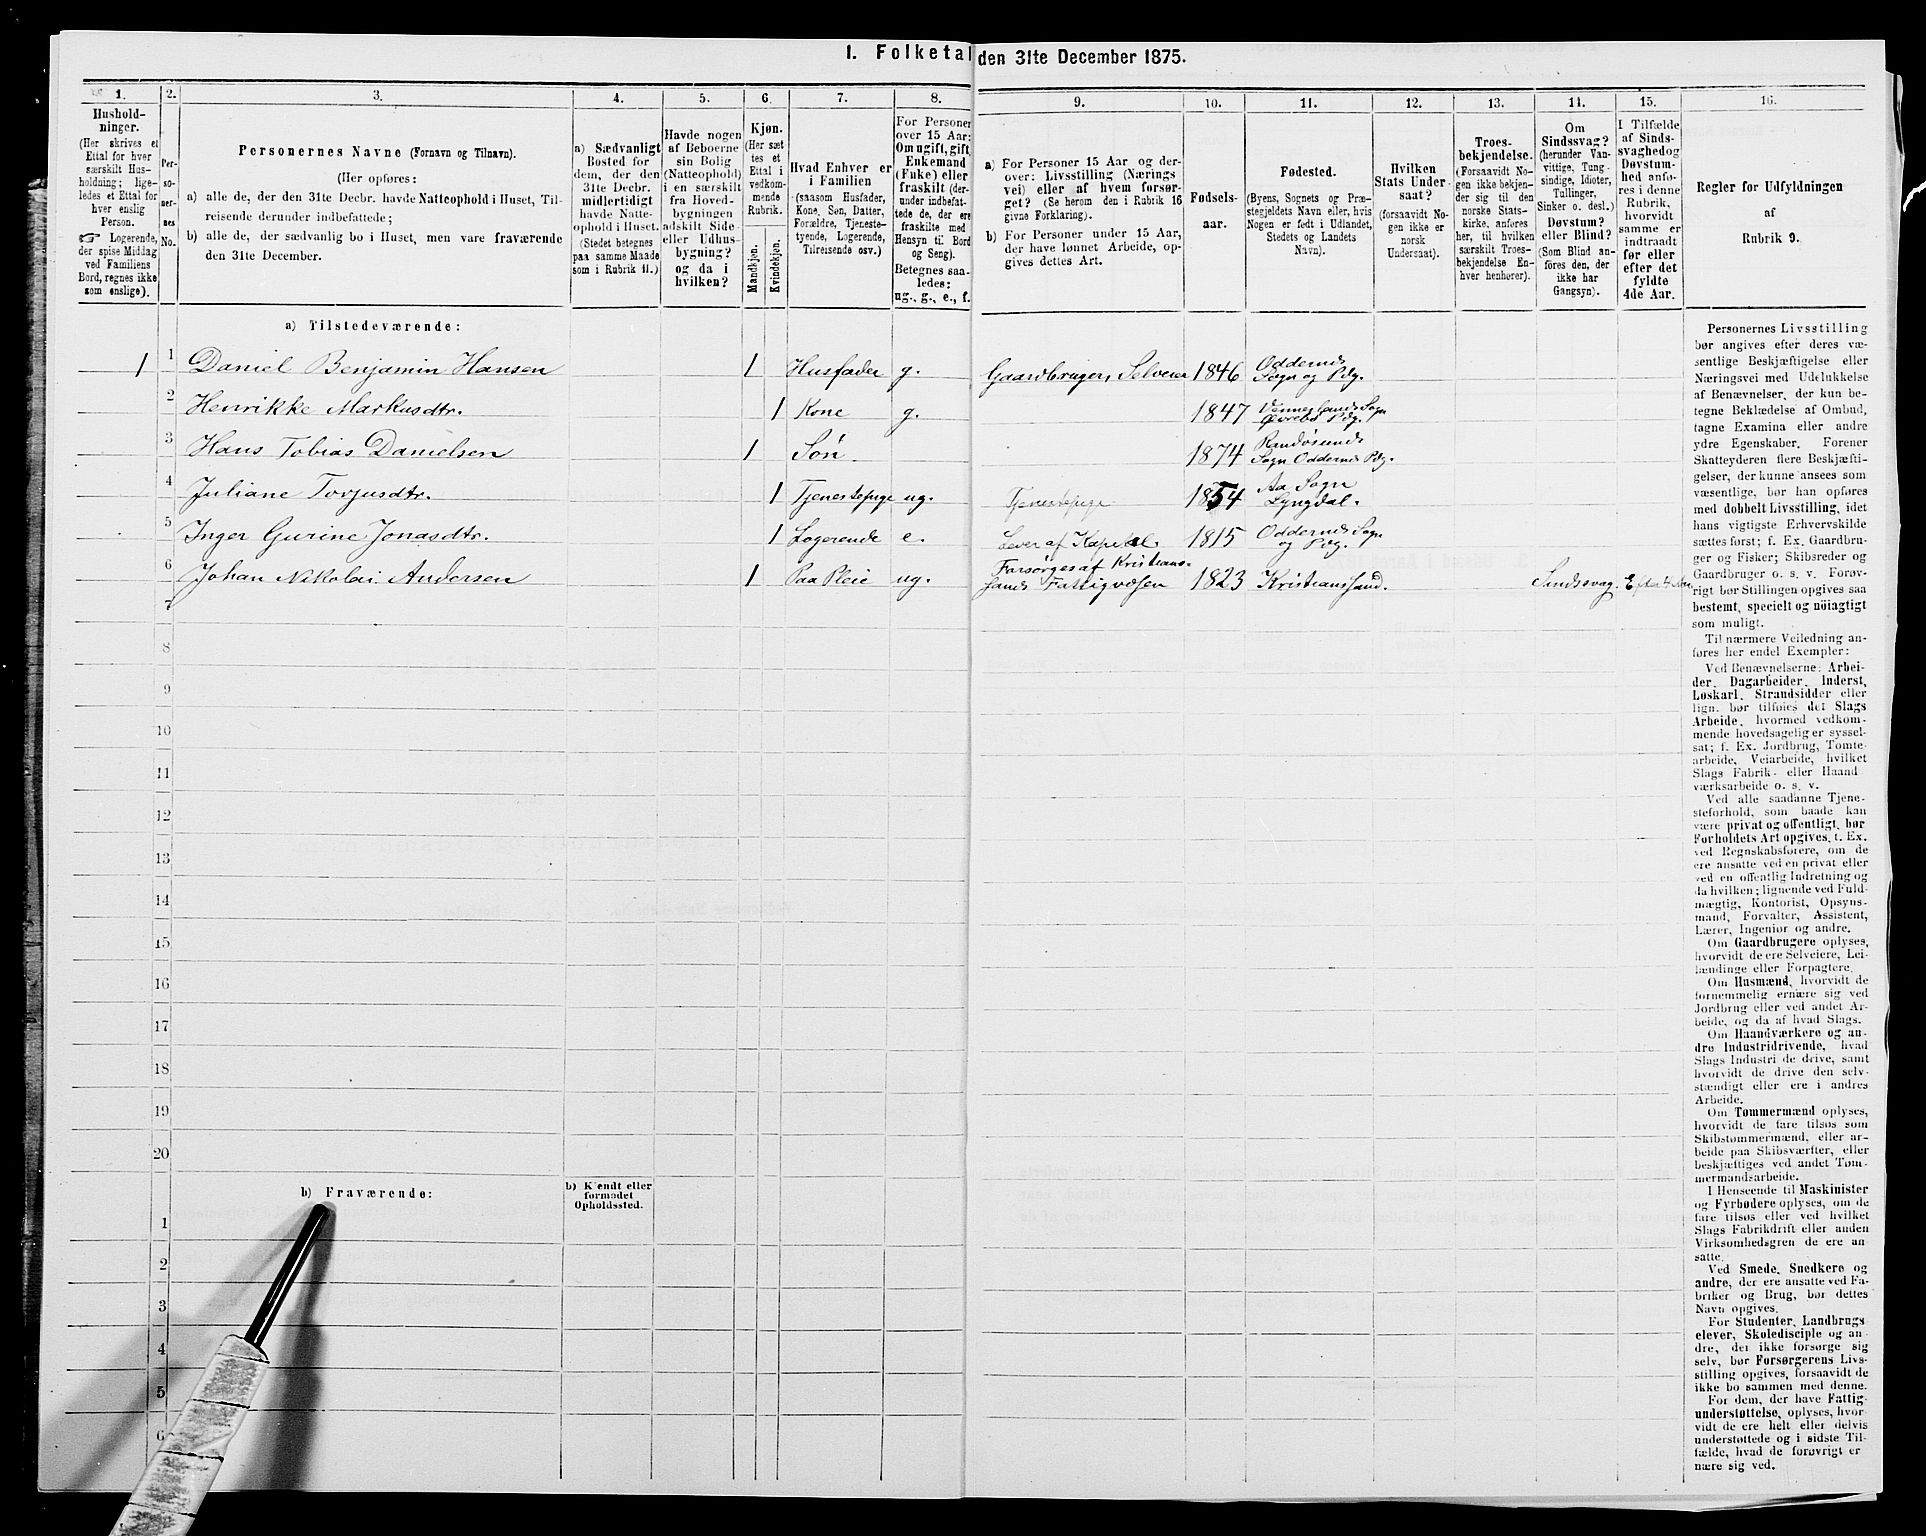 I. Folketal den 31te December 1875.
1. 2. 3. 4. 5. 6. 7. 8. 9. 10. 11. 12. 13. 14. 15. 16.
Hushold-
ninger.
(Her skrives et
Ettal for hver
særskilt Hus-
holdning; lige-
ledes et Ettal for
hver enslig
Person.
☞ Logerende,
der spise Middag
ved Familiens
Bord, regnes ikke
som enslige).
Per-
so-
ner-
nes
No.
Personernes Navne (Fornavn og Tilnavn).
(Her opføres:
a) alle de, der den 31te Decbr. havde Natteophold i Huset, Til-
reisende derunder indbefattede;
b) alle de, der sædvanlig bo i Huset, men vare fraværende
den 31te December.
a) Sædvanligt
Bosted for
dem, der den
31te Decbr.
midlertidigt
havde Natte-
ophold i Huset.
(Stedet betegnes
paa samme Maade
som i Rubrik 11.)
Havde nogen
af Beboerne
sin Bolig
(Natteophold)
i en særskilt
fra Hoved-
bygningen
adskilt Side-
eller Udhus-
bygning?
og da i
hvilken?
Kjøn.
(Her sæt
tes et
Ettal i
vedkom-
mende
Rubrik.
Mandkjøn.
Kvindekjøn.
Hvad Enhver er
i Familien
(saasom Husfader,
Kone, Søn, Datter,
Forældre, Tjeneste-
tyende, Logerende,
Tilreisende osv.)
For Personer
over 15 Aar:
Om ugift, gift,
Enkemand
(Enke) eller
fraskilt (der-
under indbefat-
tede de, der ere
fraskilte med
Hensyn til Bord
og Seng).
Betegnes saa-
ledes:
ug., g., e., f.
a) For Personer 15 Aar og der-
over: Livsstilling (Nærings
vei) eller af hvem forsør-
get? (Se herom den i Rubrik 16
givne Forklaring).
b) For Personer under 15 Aar,
der have lønnet Arbeide, op-
gives dettes Art.
Fødsels-
aar.
Fødested.
(Byens, Sognets og Præ-
stegjeldets Navn eller, hvis
Nogen er født i Udlandet,
Stedets og Landets
Navn).
Hvilken
Stats Under-
saat?
(forsaavidt No-
gen ikke er
norsk
Undersaat).
Troes-
bekjendelse.
(Forsaavidt No-
gen ikke bekjen-
der sig til den
norske Stats-
kirke, anføres
her, til hvilken
særskilt Troes-
bekjendelse En-
hver henhører).
Om
Sindssvag?
(herunder Van-
vittige, Tung-
sindige, Idioter,
Tullinger,
Sinker o. desl.)
Døvstum?
eller Blind?
(Som Blind an-
føres den, der
ikke har
Gangsyn).
I Tilfælde
af Sinds-
svaghed og
Døvstum-
hed anfø-
res i denne
Rubrik,
hvorvidt
samme er
indtraadt
før eller
efter det
fyldte
4de Aar.
Regler for Udfyldningen
af
Rubrik 9.
a) Tilstedeværende:
1 1 Daniel Benjamin Hansen 1 Husfader g. Gaardbruger, Selveier 1846 Oddernes
Sogn og Pdg.
2 Henrikke Markusdtr. 1 Kone g. 1847 Venneslands Sogn
Øvrebø Pdg.
3 Hans Tobias Danielsen 1 Søn 1874 Randøsunds
Sogn Oddernes Pdg.
4 Juliane Torjusdtr. 1 Tjenestepige ug. Tjenestepige 1854 Aa Sogn
Lyngdal.
5 Inger Gurine Jonasdtr. 1 Logerende e. Lever af Kapital. 1815 Oddernes Sogn
og Pdg.
6 Johan Nikolai Andersen 1 Paa Pleie ug. Forsørges af Kristians-
sands Fattigvæsen 1823 Kristianssand. Sindssvag. Efter 4 Aar.
7
8
9
10
11
12
13
14
15
16
17
18
19
20
b) Fraværende:
b) Kjendt eller
formodet
Opholdssted.
1
2
3
4
5
6
Personernes Livsstilling
bør angives efter deres væ-
sentlige Beskjæftigelse eller
Næringsvei med Udelukkelse
af Benævnelser, der kun be-
tegne Beklædelse af Ombud,
tagne Examina eller andre
ydre Egenskaber. Forener
Skatteyderen flere Beskjæfti-
gelser, der kunne ansees som
væsentlige, bør han opføres
med dobbelt Livsstilling, idet
hans vigtigste Erhvervskilde
sættes først; f. Ex. Gaardbru-
ger og Fisker; Skibsreder og
Gaardbruger o. s. v. Forøv-
rigt bør Stillingen opgives saa
bestemt, specielt og nøiagtigt
som muligt.
Til nærmere Veiledning an-
føres her endel Exempler:
Ved Benævnelserne: Arbei-
der, Dagarbeider, Inderst,
Løskarl, Strandsidder eller
lign. bør tilføies det Slags
Arbeide, hvormed vedkom-
mende hovedsagelig er syssel-
sat; f. Ex. Jordbrug, Tomte-
arbeide, Veiarbeide, hvilket
Slags Fabrik- eller Haand
værksarbeide o. s. v.
Ved alle saadanne Tjene-
steforhold, som baade kan
være privat og offentligt, bør
Forholdets Art opgives, t. Ex.
ved Regnskabsførere, om de
ere ansatte ved en privat eller
ved en offentlig Indretning og
da hvilken; lignende ved Fuld-
mægtig, Kontorist, Opsyns-
mand, Forvalter, Assistent,
Lærer, Ingeniør og andre.
Om Gaardbrugere oplyses,
hvorvidt de ere Selveiere, Lei-
lændinge eller Forpagtere.
Om Husmænd, hvorvidt de
fornemmelig ernære sig ved
Jordbrug eller ved andet Ar-
beide, og da af hvad Slags.
Om Haandværkere og an-
dre Industridrivende, hvad
Slags Industri de drive, samt
hvorvidt de drive den selv-
stændigt eller ere i andres
Arbeide.
Om Tømmermænd oplyses,
hvorvidt de fare tilsøs som
Skibstømmermænd, eller ar-
beide paa Skibsværfter, eller
beskjæftiges ved andet Tøm-
mermandsarbeide.
I Henseende til Maskinister
og Fyrbødere oplyses, om de
fare tilsøs eller ved hvilket
Slags Fabrikdrift eller anden
Virksomhedsgren de ere an-
satte.
Ved Smede, Snedkere og
andre, der ere ansatte ved Fa-
briker og Brug, bør dettes
Navn opgives.
For Studenter, Landbrugs
elever, Skoledisciple og an
dre, der ikke forsørge sig
selv, bør Forsørgerens Livs-
stilling opgives, forsaavidt de
ikke bo sammen med denne.
For dem, der have Fattig-
understøttelse, oplyses, hvor-
vidt de ere helt eller delvis
understøttede og i sidste Til-
fælde, hvad de forøvrigt er
nære sig ved.